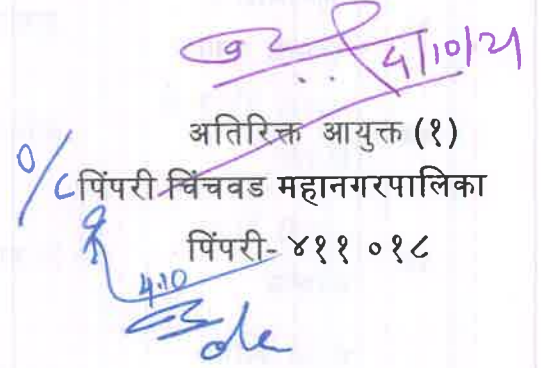 ५/10/21
अतिरिक्त आयुक्त (१)
O/C पिंपरी चिंचवड महानगरपालिका
पिंपरी- ४११ ०१८